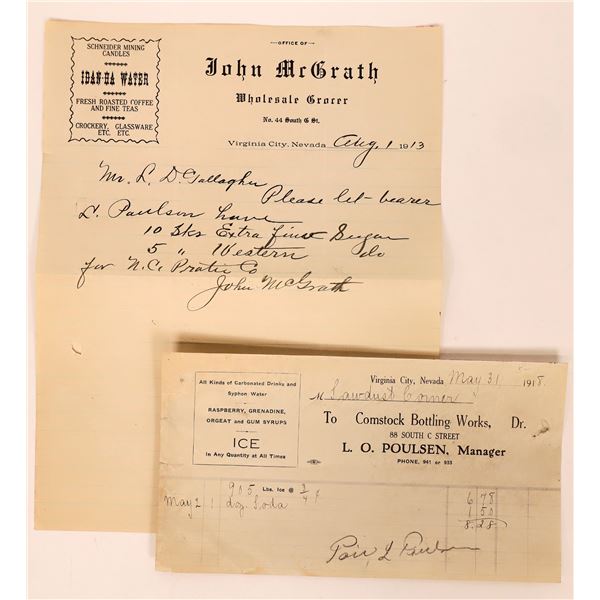 SCHNEIDER MINING
CANDLES
IDAN-HA WATER
FRESH ROASTED COFFEE
AND FINE TEAS
CROCKERY, GLASSWARE
ETC. ETC.
OFFICE OF
John McGrath
Wholesale Grocer
No. 44 South C St.
Virginia City, Nevada Aug, 1 1913
Mr. L. D. Gallagher
Please let bearer
L. Paulson have
10 Sks Extra fine Sugar
5 " Western do
for N.C. Co
John McGrath
All Kinds of Carbonated Drinks and
Syphon Water
RASPBERRY, GRENADINE,
ORGEAT and GUM SYRUPS
ICE
In Any Quantity at All Times
Virginia City, Nevada May 31 1918.
M Sawdust Corner
To Comstock Bottling Works, Dr.
88 SOUTH C STREET
L. O. POULSEN, Manager
PHONE, 941 or 933
905 Lbs. Ice @ 3/4 ¢ 6 78
May 2 1 dz. Soda 1 50
8.28